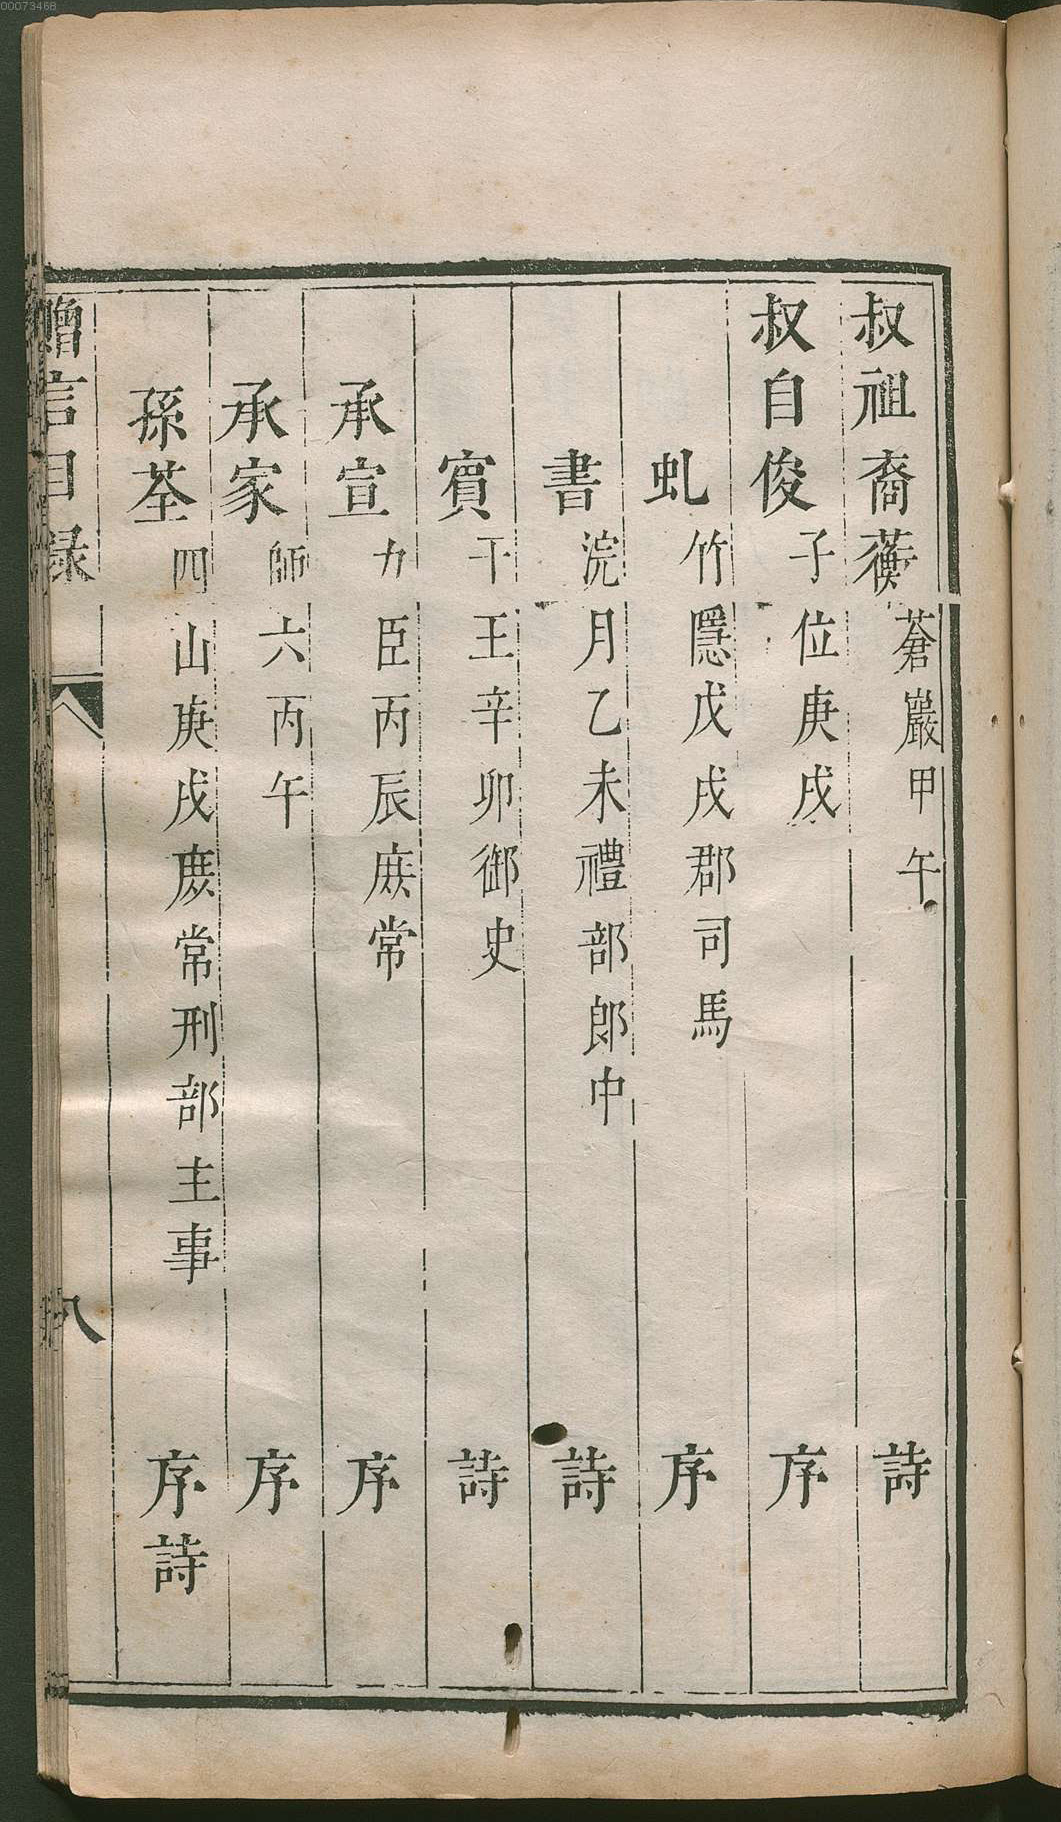 00073468
叔祖裔蘅蒼巖甲午 詩
叔自俊子位庚戌 序
虬竹隱戊戌郡司馬 序
書浣月乙未禮部郎中 詩
賓干王辛卯御史 詩
承宣力臣丙辰庶常 序
承家師六丙午 序
孫荃四山庚戌庶常刑部主事 序詩
贈言目录 八